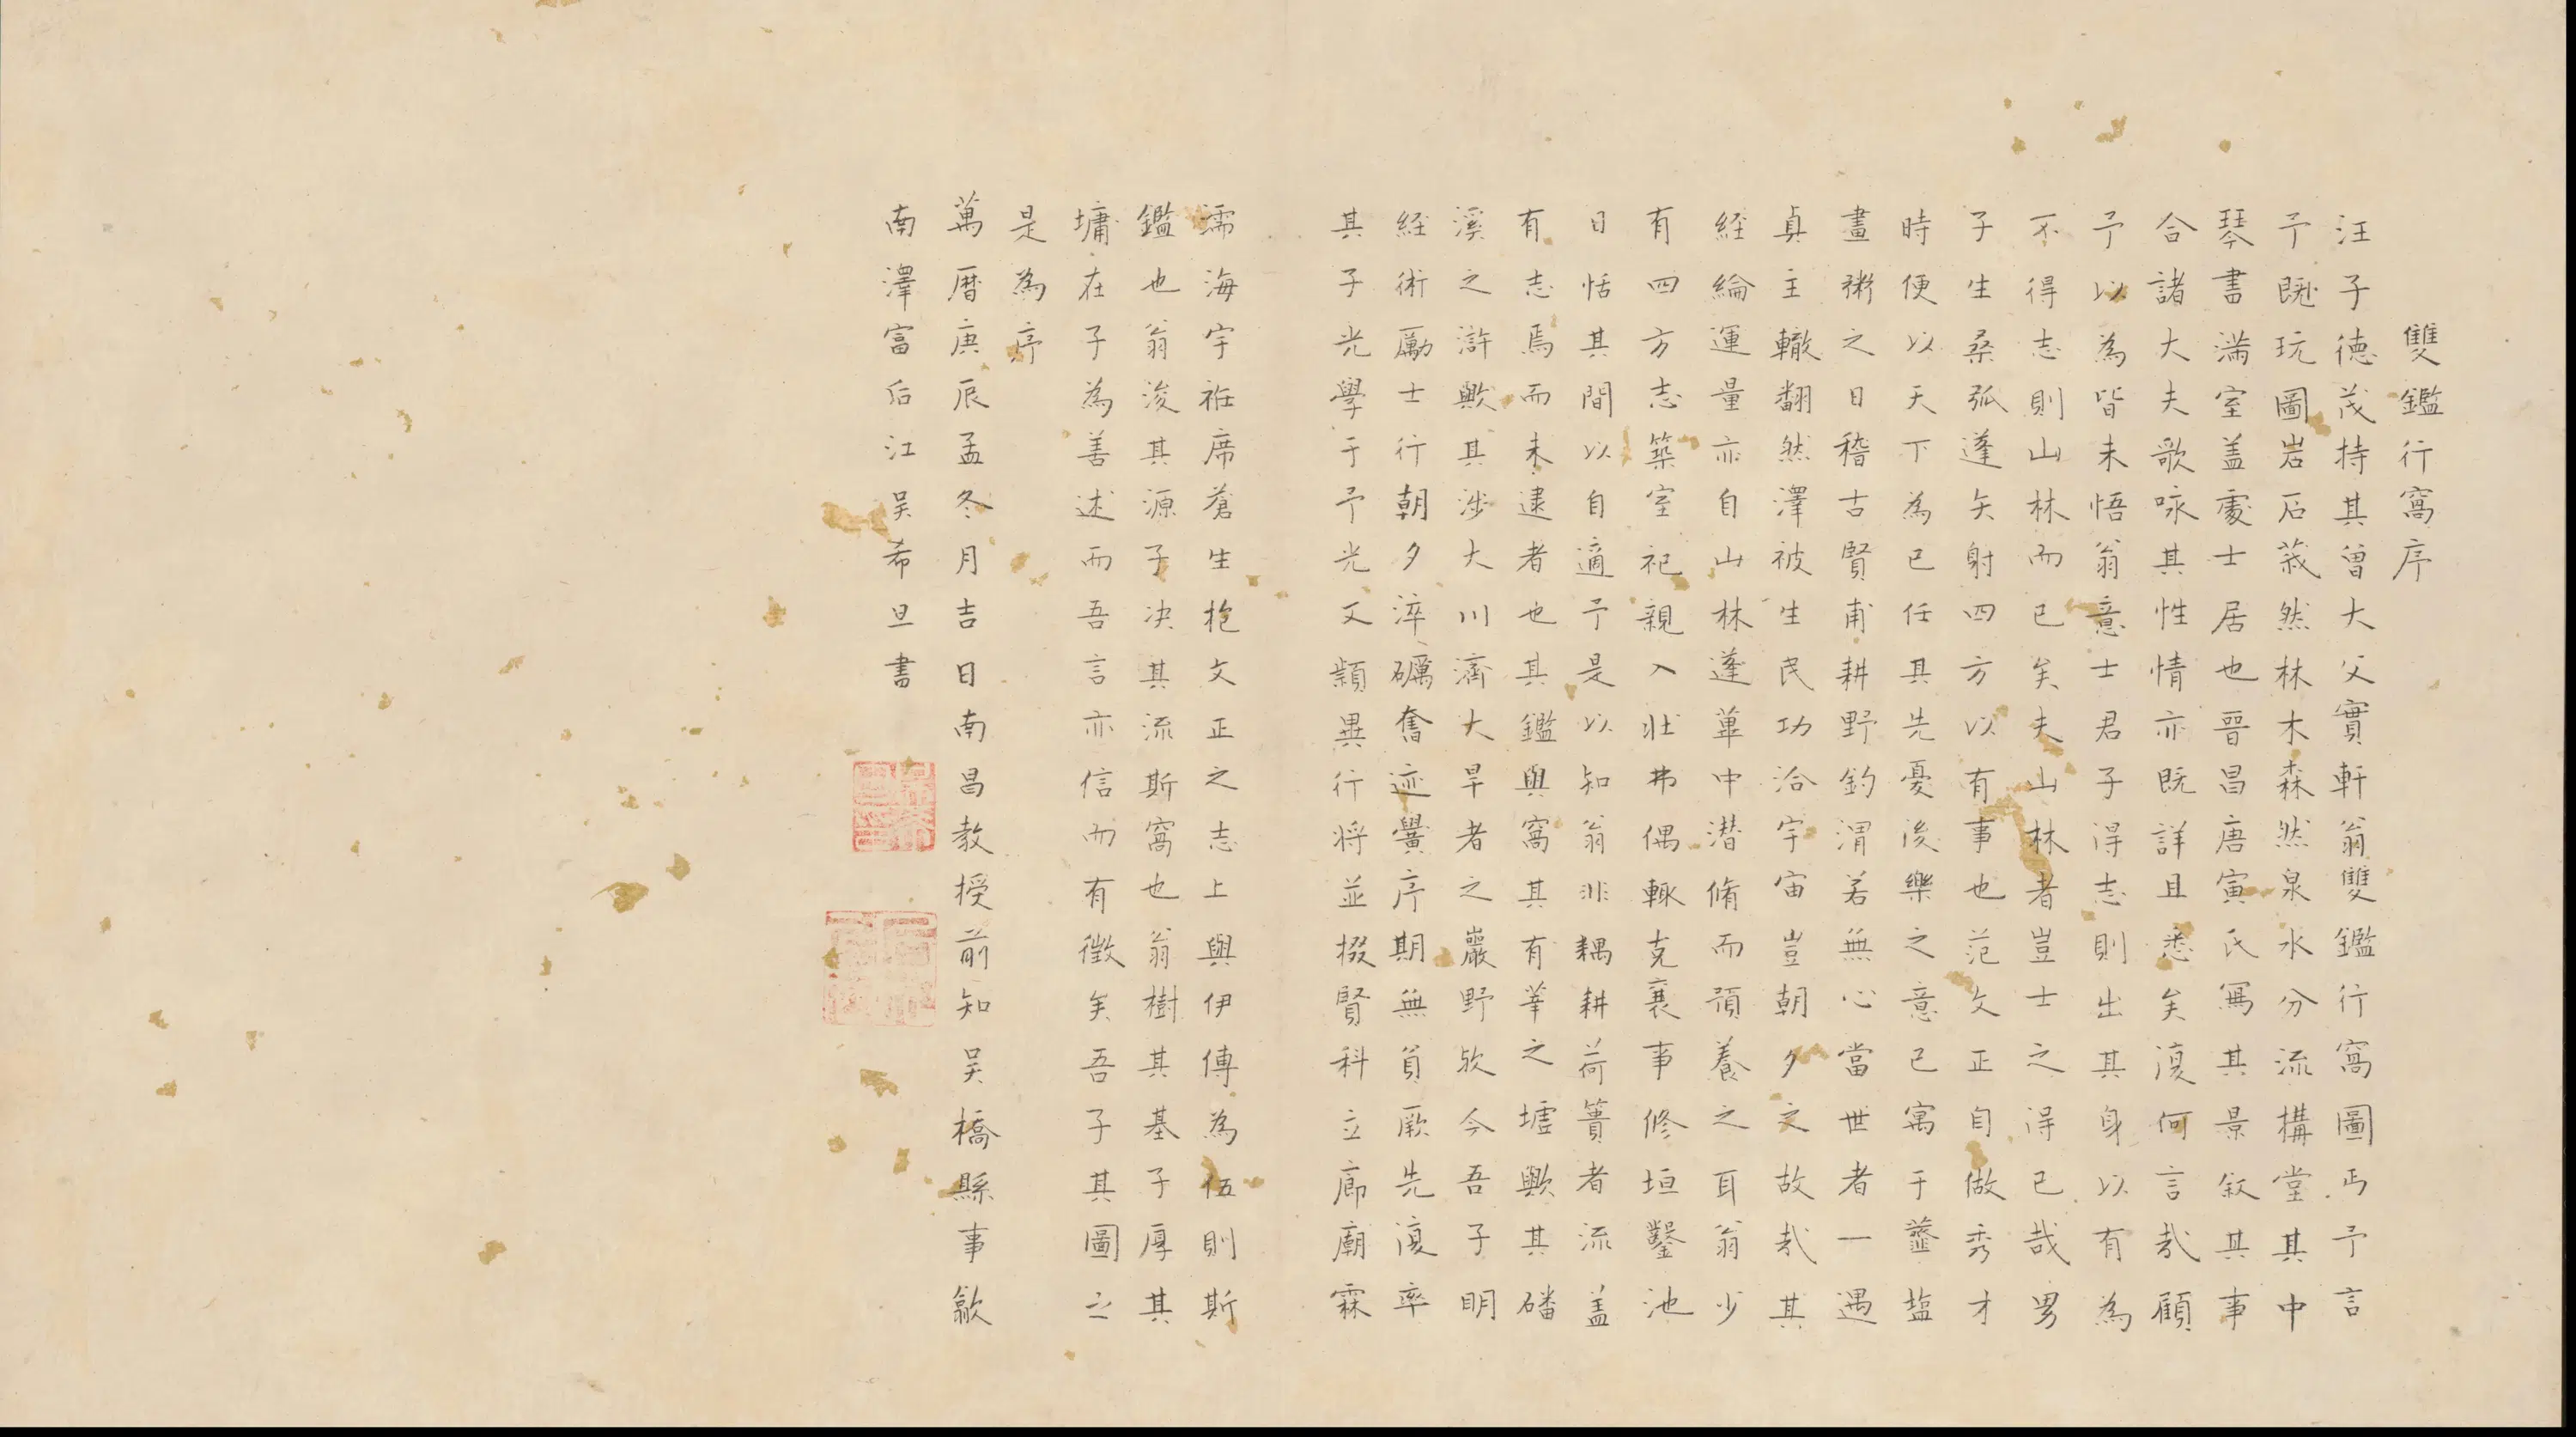 雙鑑行窩序
汪子德茂持其曾大父實軒翁雙鑑行窩圖丐予言
予既玩圖岩石莪然林木森然泉水分流構堂其中
琴書滿室盖處士居也晋昌唐寅氏寫其景叙其事
合諸大夫歌咏其性情亦既詳且悉矣復何言哉顧
予以為皆未悟翁意士君子得志則出其身以有為
不得志則山林而已矣夫山林者豈士之得已哉男
子生桑弧蓬矢射四方以有事也范文正自做秀才
時便以天下為已任其先憂後樂之意已寓于虀塩
晝粥之日稽古賢甫耕野釣渭若無心當世者一遇
真主轍翻然澤被生民功洽宇宙豈朝夕之故哉其
經綸運量亦自山林蓬蓽中潜脩而預養之耳翁少
有四方志築室祀親入壯弗偶輒克襄事修垣鑿池
日恬其間以自適予是以知翁非耦耕荷蕢者流盖
有志焉而未逮者也其鑑與窩其有莘之墟歟其磻
溪之滸歟其涉大川濟大旱者之巖野欤今吾子明
經術勵士行朝夕淬礪奮迹黌序期無負厥先復率
其子光學于予光又頴異行将並掇賢科立廊廟霖
濡海宇衽席蒼生抱文正之志上與伊傅為伍則斯
鑑也翁浚其源子决其流斯窩也翁樹其基子厚其
墉在子為善述而吾言亦信而有徵矣吾子其圖之
是為序
萬曆庚辰孟冬月吉日南昌教授前知吴橋縣事歙
南澤富后江吴希旦書